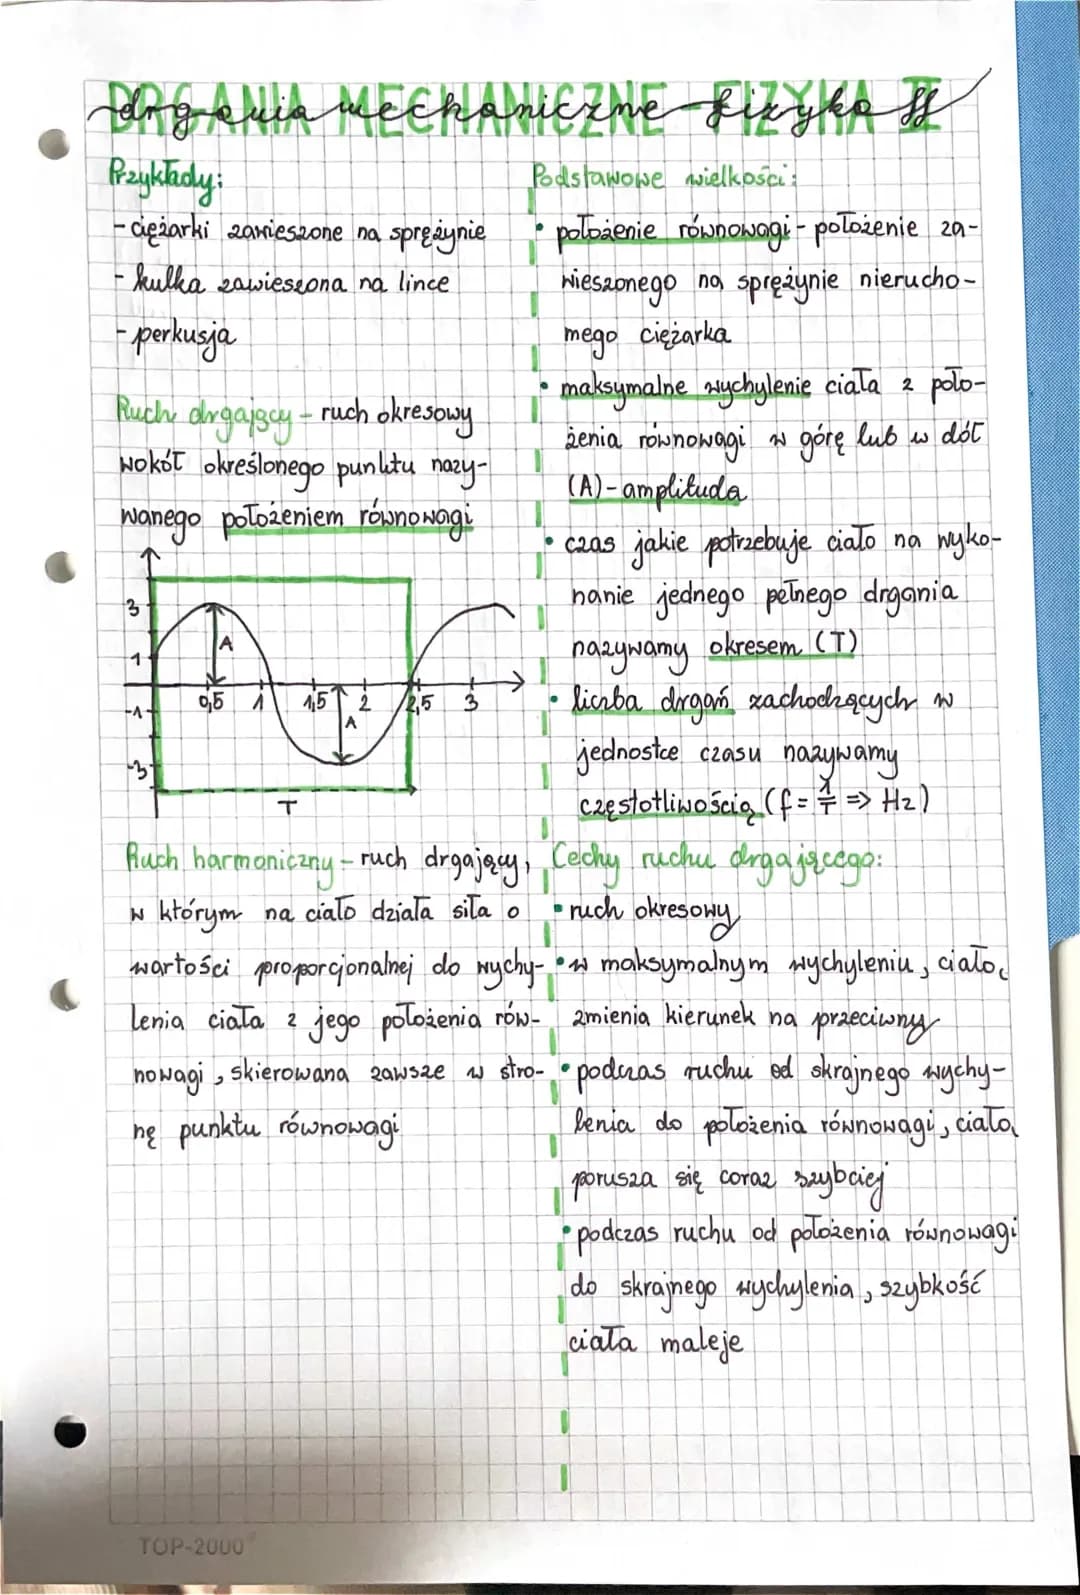 DRGANIA MECHANICZNE FIZYKA II
drgania mechaniczne fizyka II
Przykłady:
- ciężarki zawieszone na sprężynie
- kulka zawieszona na lince
- perkusja
Ruch drgający - ruch okresowy
wokół określonego punktu nazy-
wanego położeniem równowagi
3
1
-1
-3
A
A
0,5 1 1,5 2 2,5 3
T
Ruch harmoniczny - ruch drgający,
w którym na ciało działa siła o
wartości proporcjonalnej do wychy-
lenia ciała z jego położenia rów-
nowagi, skierowana zawsze w stro-
nę punktu równowagi
Podstawowe wielkości:
• położenie równowagi - położenie za-
wieszonego na sprężynie nierucho-
mego ciężarka
• maksymalne wychylenie ciała z poło-
żenia równowagi w górę lub w dół
(A) - amplituda
• czas jakie potrzebuje ciało na wyko-
nanie jednego pełnego drgania
nazywamy okresem (T)
• liczba drgań zachodzących w
jednostce czasu nazywamy
częstotliwością (f = 1/T => Hz)
Cechy ruchu drgającego:
• ruch okresowy
• w maksymalnym wychyleniu, ciało
zmienia kierunek na przeciwny
• podczas ruchu od skrajnego wychy-
lenia do położenia równowagi, ciało
porusza się coraz szybciej
• podczas ruchu od położenia równowagi
do skrajnego wychylenia, szybkość
ciała maleje
TOP-2000